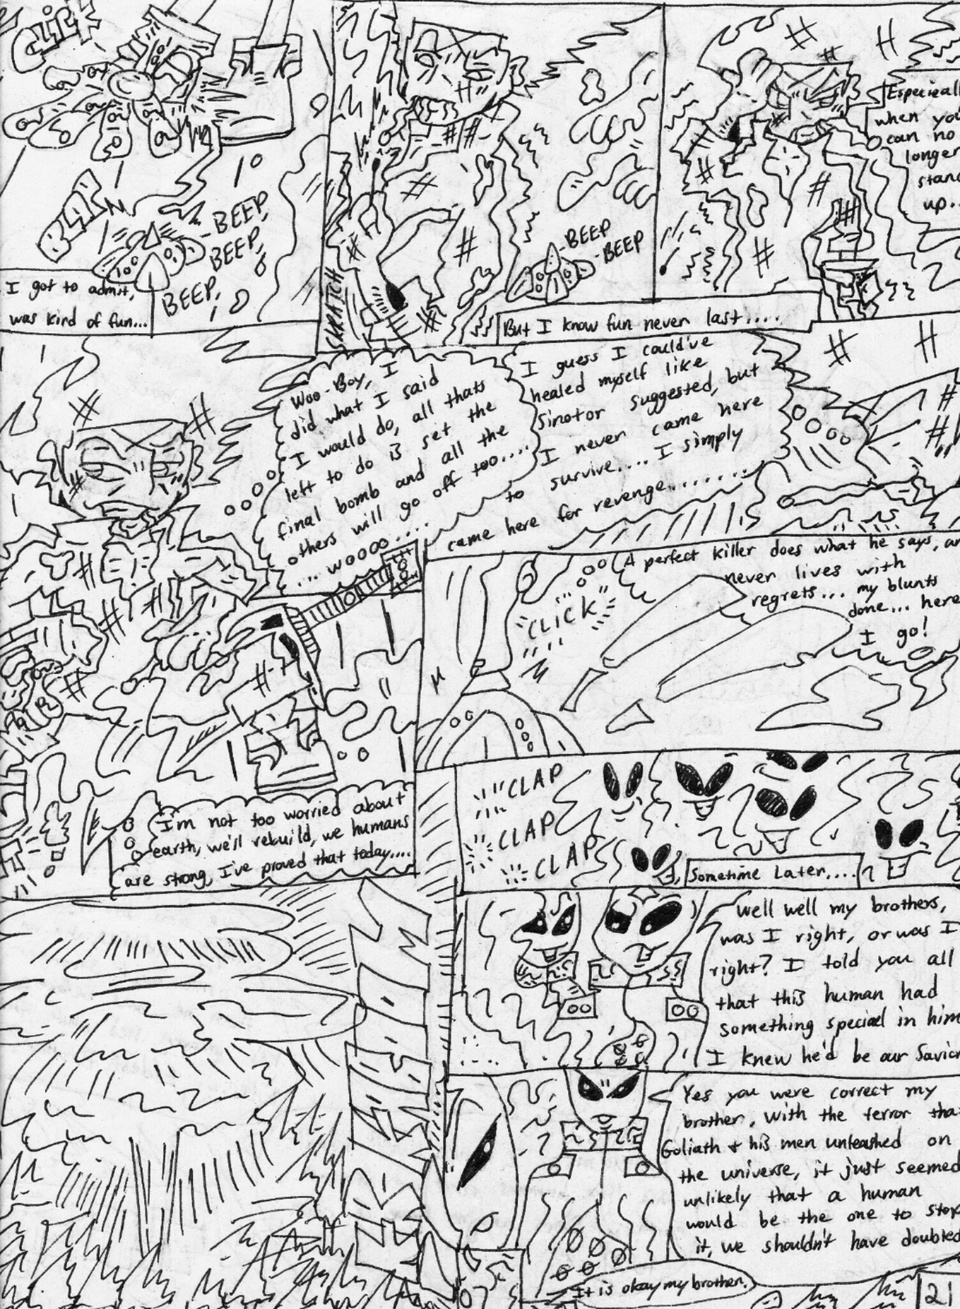 CLICK
BLIP
BEEP,
BEEP,
BEEP,
I got to admit,
was kind of fun...
SCRATCH
BEEP
BEEP
But I know fun never last.....
Especially
when you
can no
longer
stand
up...
Woo-Boy, I
did what I said
I would do, all thats
left to do is set the
final bomb and all the
others will go off too....
.... woooo....
I guess I could've
healed myself like
Sinotor suggested, but
I never came here
to survive.... I simply
came here for revenge.......
CLICK
A perfect killer does what he says, an
never lives with
regrets... my blunts
done... here
I go!
I'm not too worried about
earth, we'll rebuild, we humans
are strong, I've proved that today....
CLAP
CLAP
CLAP
Sometime Later....
Well well my brothers,
was I right, or was I
right? I told you all
that this human had
something special in him
I knew he'd be our Savior
Yes you were correct my
brother, With the terror that
Goliath + his men unleashed on
the universe, it just seemed
unlikely that a human
would be the one to stop
it, we shouldn't have doubted
It is okay my brother,
21